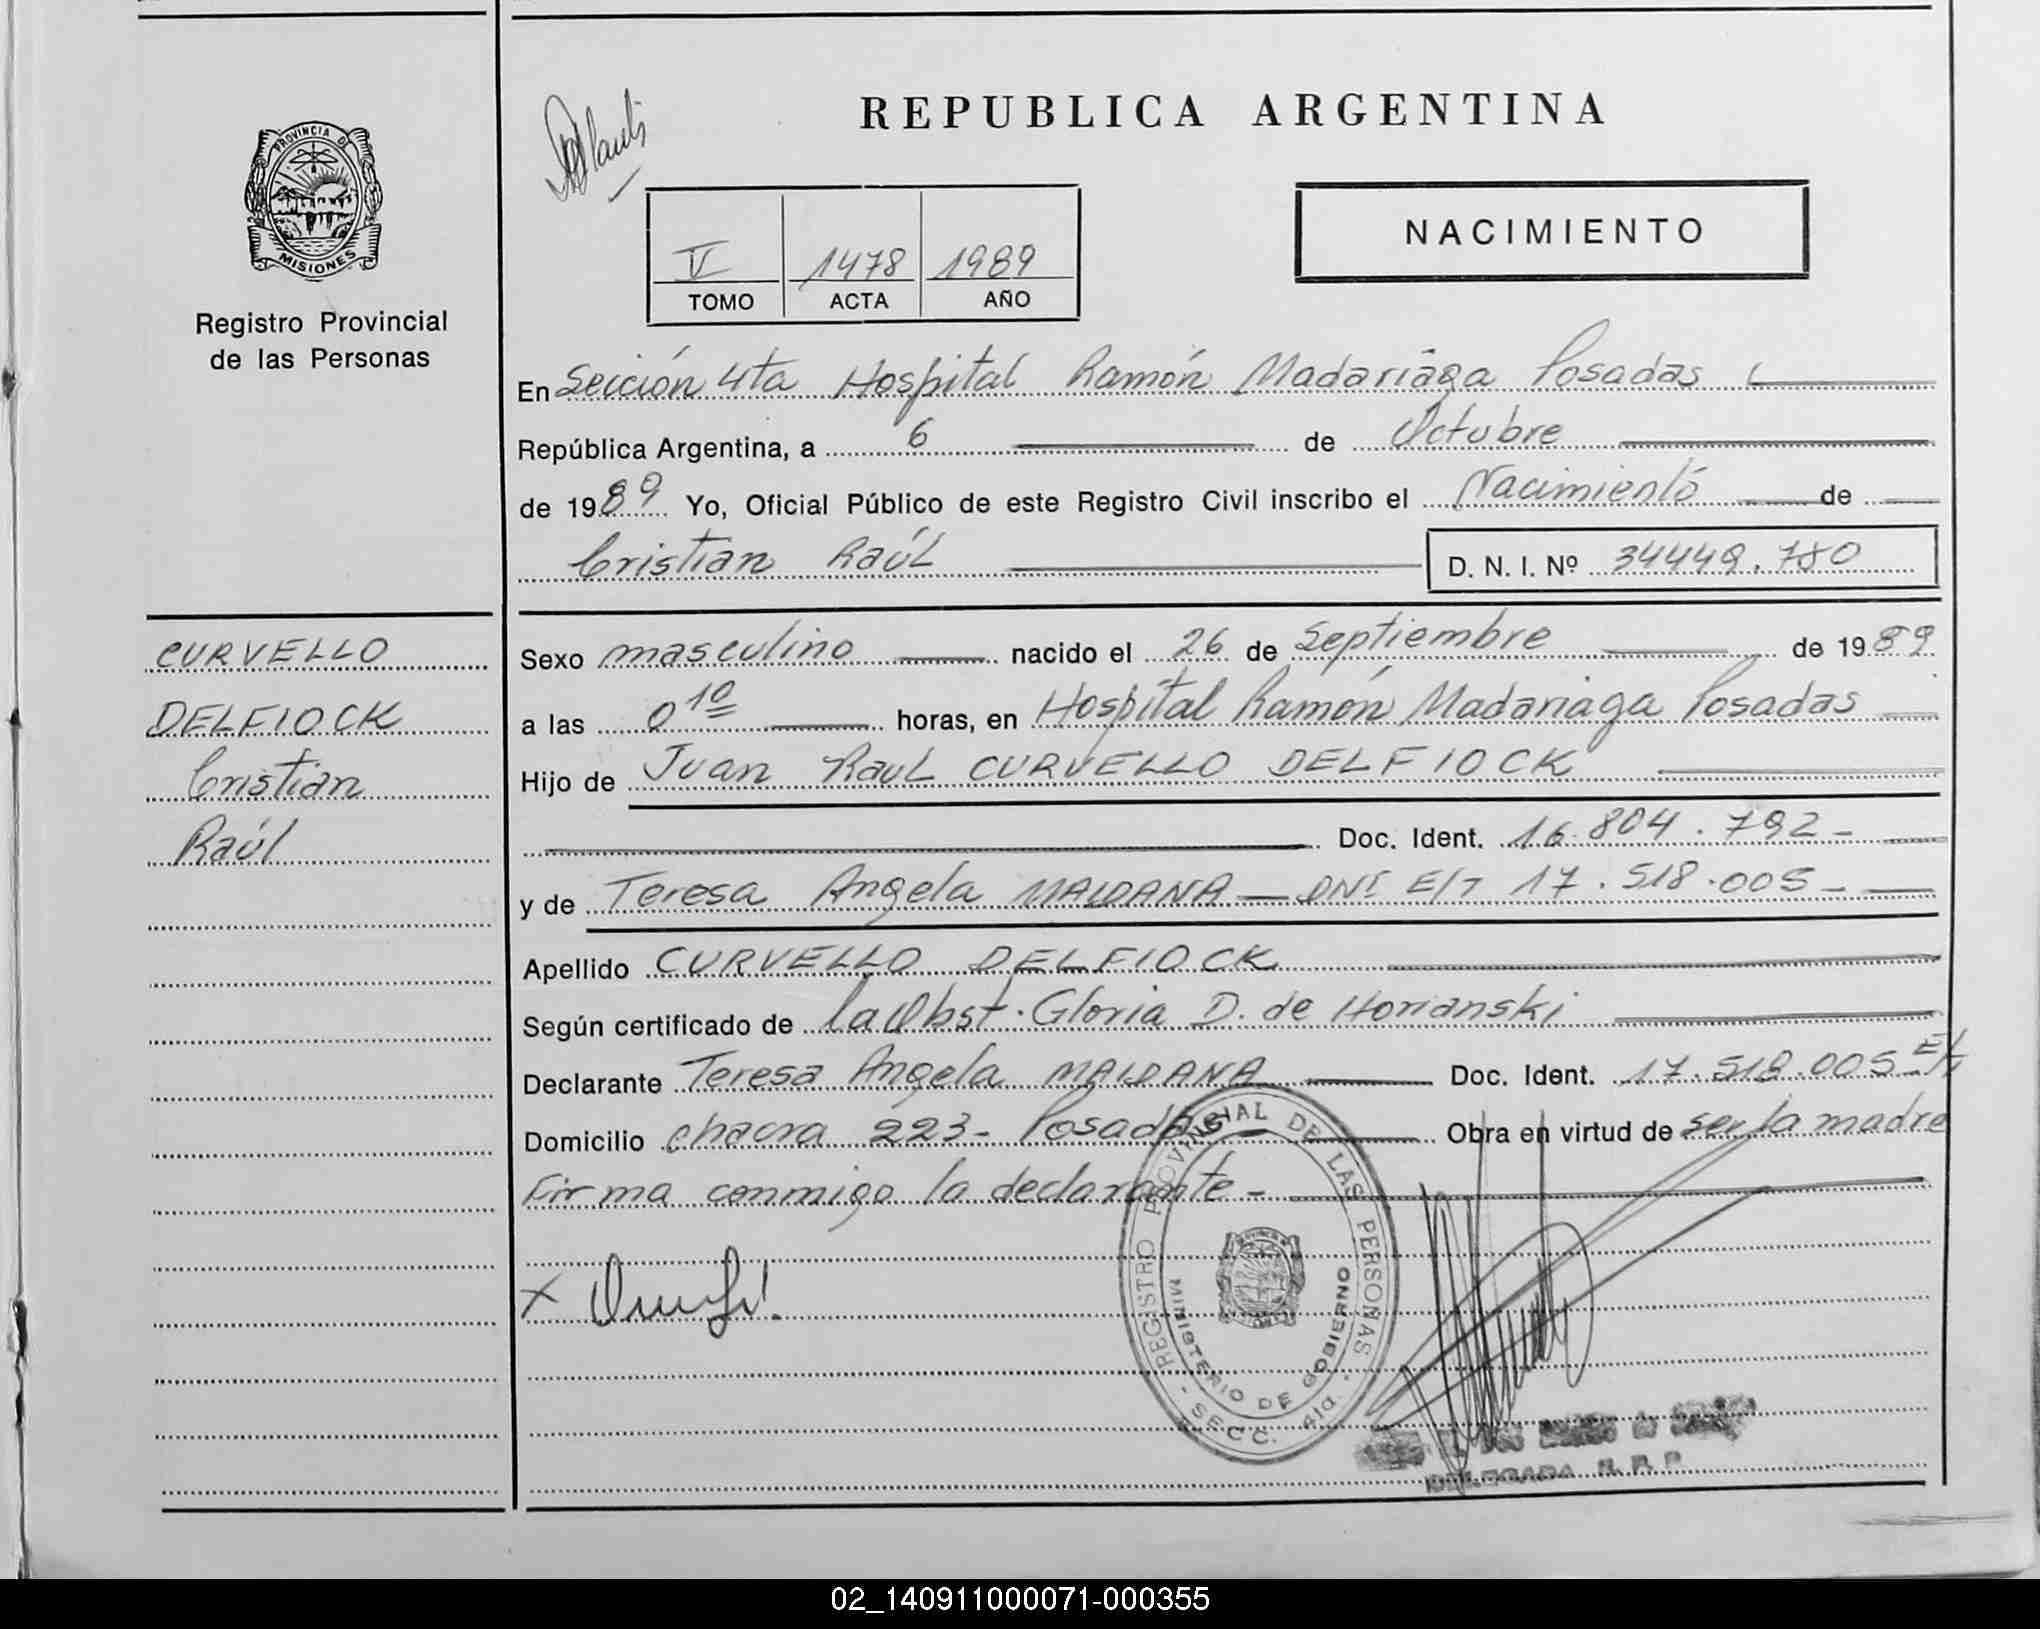 REPUBLICA ARGENTINA
PROVINCIA DE
MISIONES
Registro Provincial
de las Personas
V 1478 1989
TOMO ACTA AÑO
NACIMIENTO
En Sección 4ta Hospital Ramón Madariaga Posadas
República Argentina, a 6 de Octubre
de 1989 Yo, Oficial Público de este Registro Civil inscribo el Nacimiento de
Cristian Raúl D. N. I. Nº 34449.780
CURVELLO
DELFIOCK
Cristian
Raúl
Sexo masculino nacido el 26 de Septiembre de 1989
a las 0 10 horas, en Hospital Ramón Madariaga Posadas
Hijo de Juan Raul CURVELLO DELFIOCK
Doc. Ident. 16.804.792-
y de Teresa Angela MALDANA — DNI E/T 17.518.005-
Apellido CURVELLO DELFIOCK
Según certificado de la Obst. Gloria D. de Horianski
Declarante Teresa Angela MALDANA Doc. Ident. 17.518.005 E/T
Domicilio chacra 223- Posadas Obra en virtud de ser la madre
Firma conmigo la declarante-
REGISTRO PROVINCIAL DE LAS PERSONAS
MINISTERIO DE GOBIERNO
- SECC. 4ta. -
X
DELEGADA R. P. P.
02_140911000071-000355